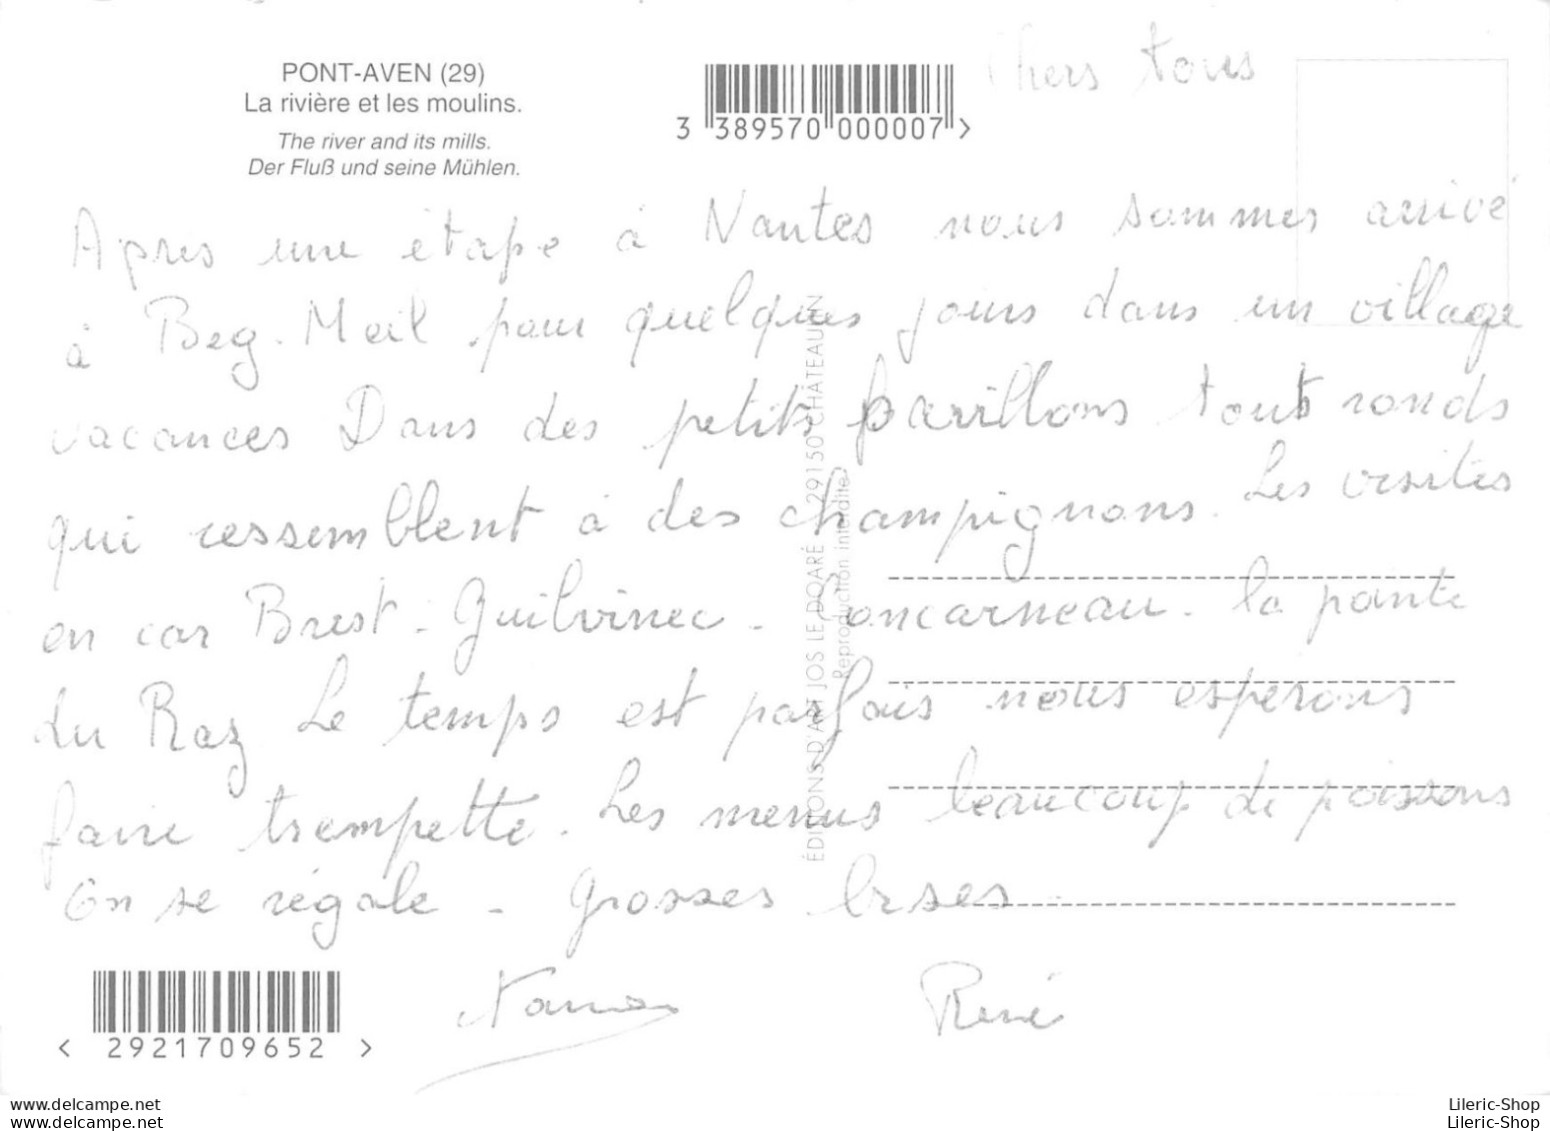 Chers tous
PONT-AVEN (29)
La rivière et les moulins.
The river and its mills.
Der Fluß und seine Mühlen.
3 389570 000007 >
Après une étape à Nantes nous sommes arrivé
à Beg-Meil pour quelques jours dans un village
vacances Dans des petits pavillons tout ronds
qui ressemblent à des champignons. Les visites
en car Brest - Guilvinec - Concarneau - la pointe
du Raz Le temps est parfais nous esperons
faire trempette. Les menus beaucoup de poissons
On se régale - Grosses bises.
René
ÉDITIONS D'ART JOS LE DOARÉ 29150 CHÂTEAULIN
Reproduction interdite
< 2921709652 >
www.delcampe.net
www.delcampe.net
Lileric-Shop
Lileric-Shop